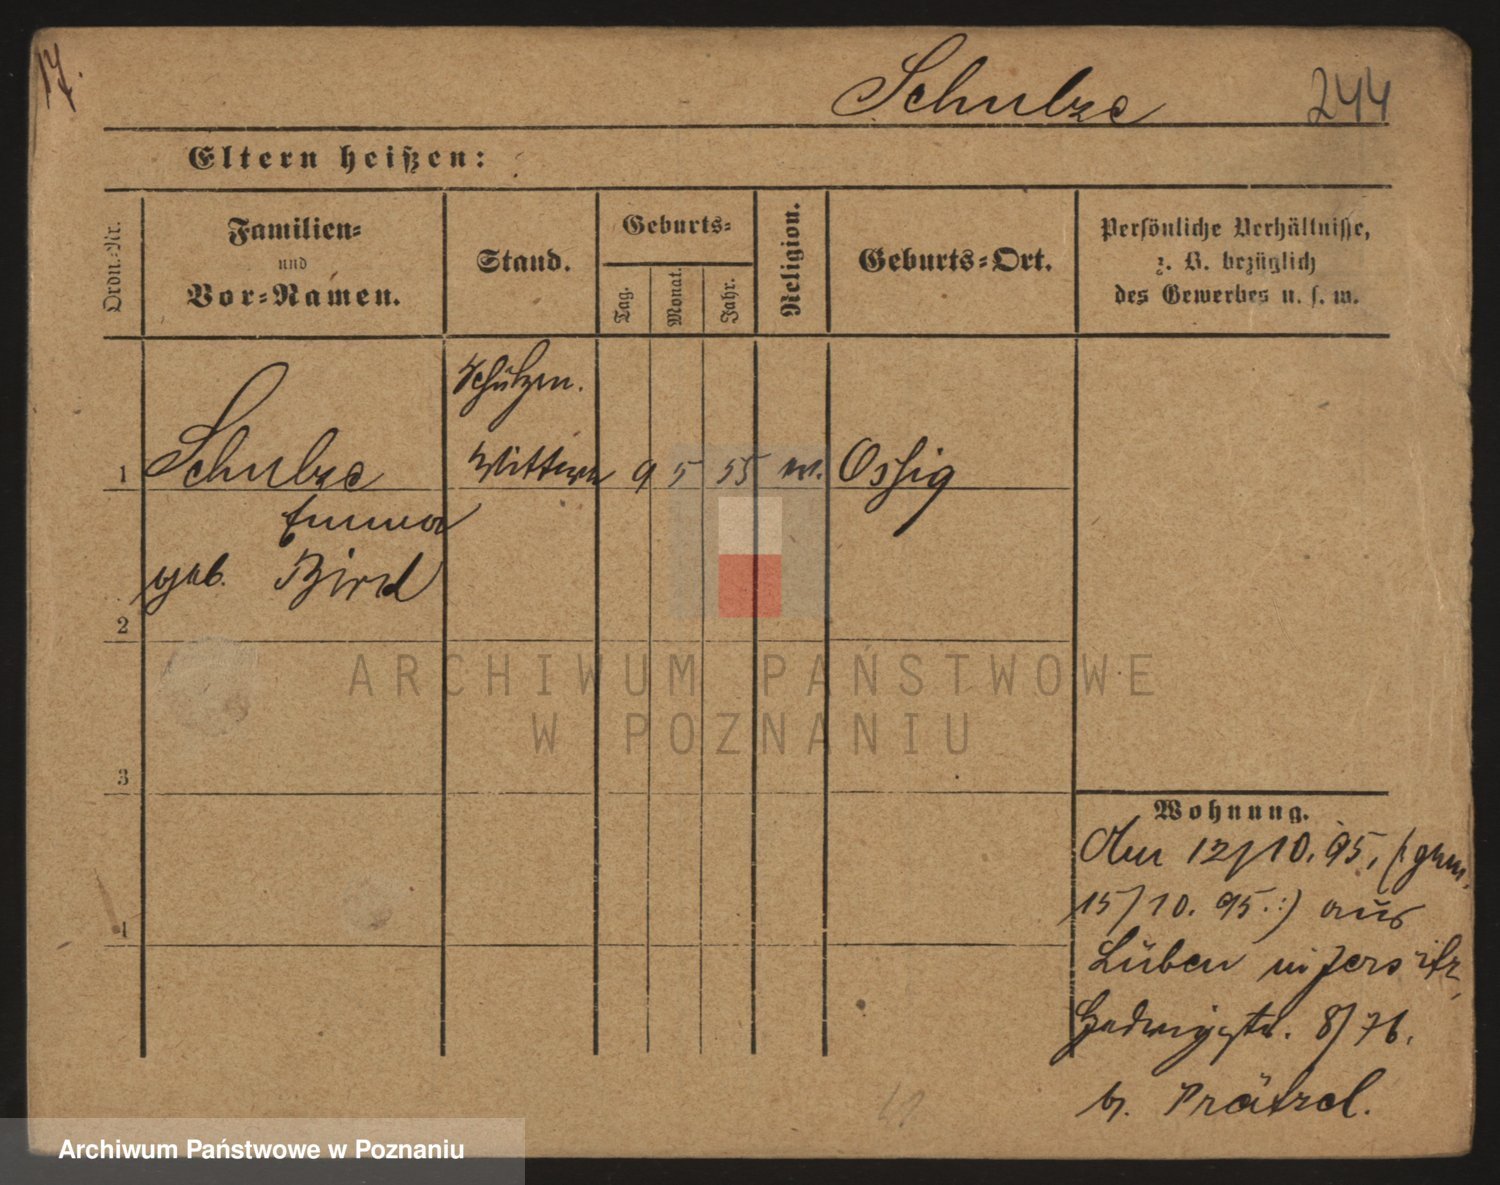 17.
Schulze 244
Eltern heißen:
Ordn.-Nr.
Familien-
und
Vor-Namen.
Stand.
Geburts-
Tag.
Monat.
Jahr.
Religion.
Geburts-Ort.
Persönliche Verhältnisse,
z. B. bezüglich
des Gewerbes u. s. w.
Schützen.
1 Schulze Wittwe 9 5 55 Ossig
Emma
geb. Bird
2
ARCHIWUM PAŃSTWOWE
W POZNANIU
3
Wohnung.
12/10. 95, (: gem.
15/10. 95. :) aus
4
Lüben in Jersitz,
Hedwigstr. 8/76.
b. Prätzel.
Archiwum Państwowe w Poznaniu